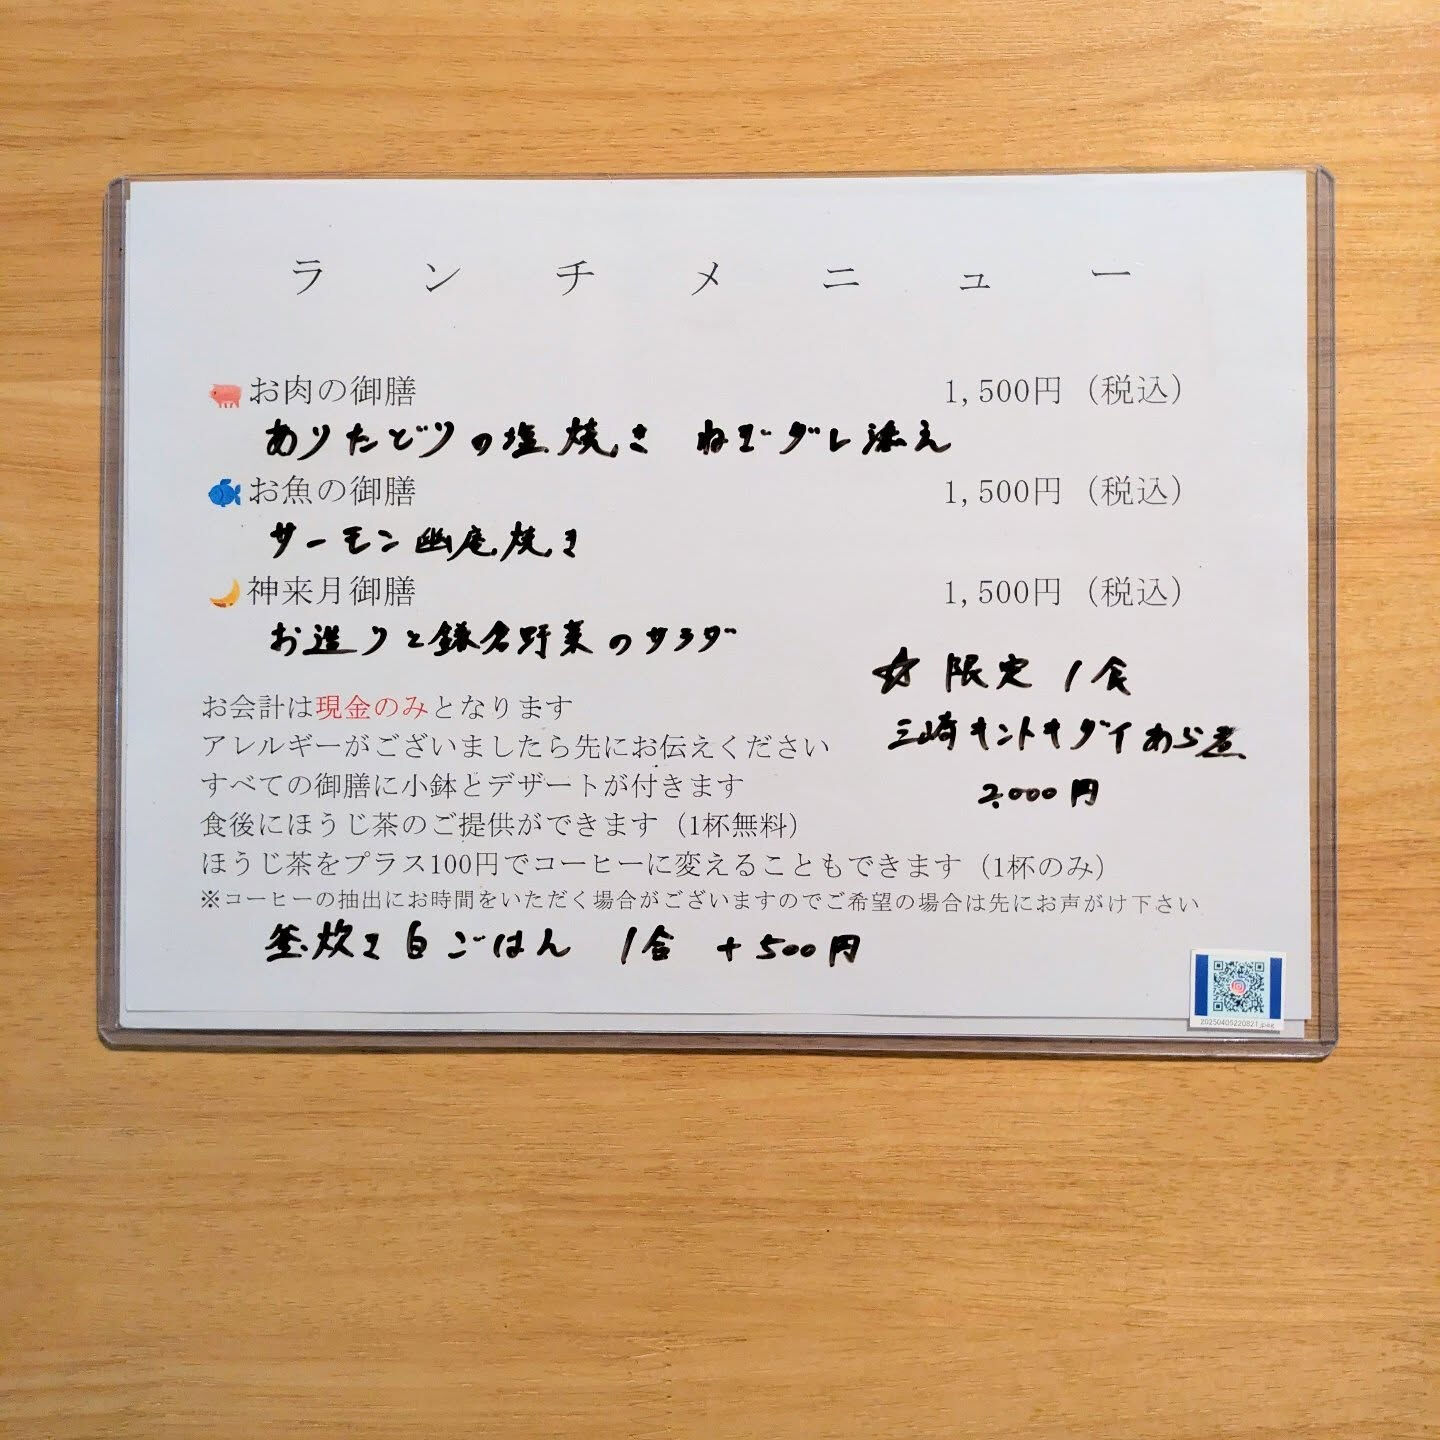 ランチメニュー
お肉の御膳 1,500円（税込）
ありたどりの塩焼き ねぎダレ添え
お魚の御膳 1,500円（税込）
サーモン幽庵焼き
神来月御膳 1,500円（税込）
お造りと鎌倉野菜のサラダ
☆限定1食
三崎キントキダイあら煮
2,000円
お会計は現金のみとなります
アレルギーがございましたら先にお伝えください
すべての御膳に小鉢とデザートが付きます
食後にほうじ茶のご提供ができます（1杯無料）
ほうじ茶をプラス100円でコーヒーに変えることもできます（1杯のみ）
※コーヒーの抽出にお時間をいただく場合がございますのでご希望の場合は先にお声がけ下さい
釜炊き白ごはん 1合 +500円
20250405220821.jpeg